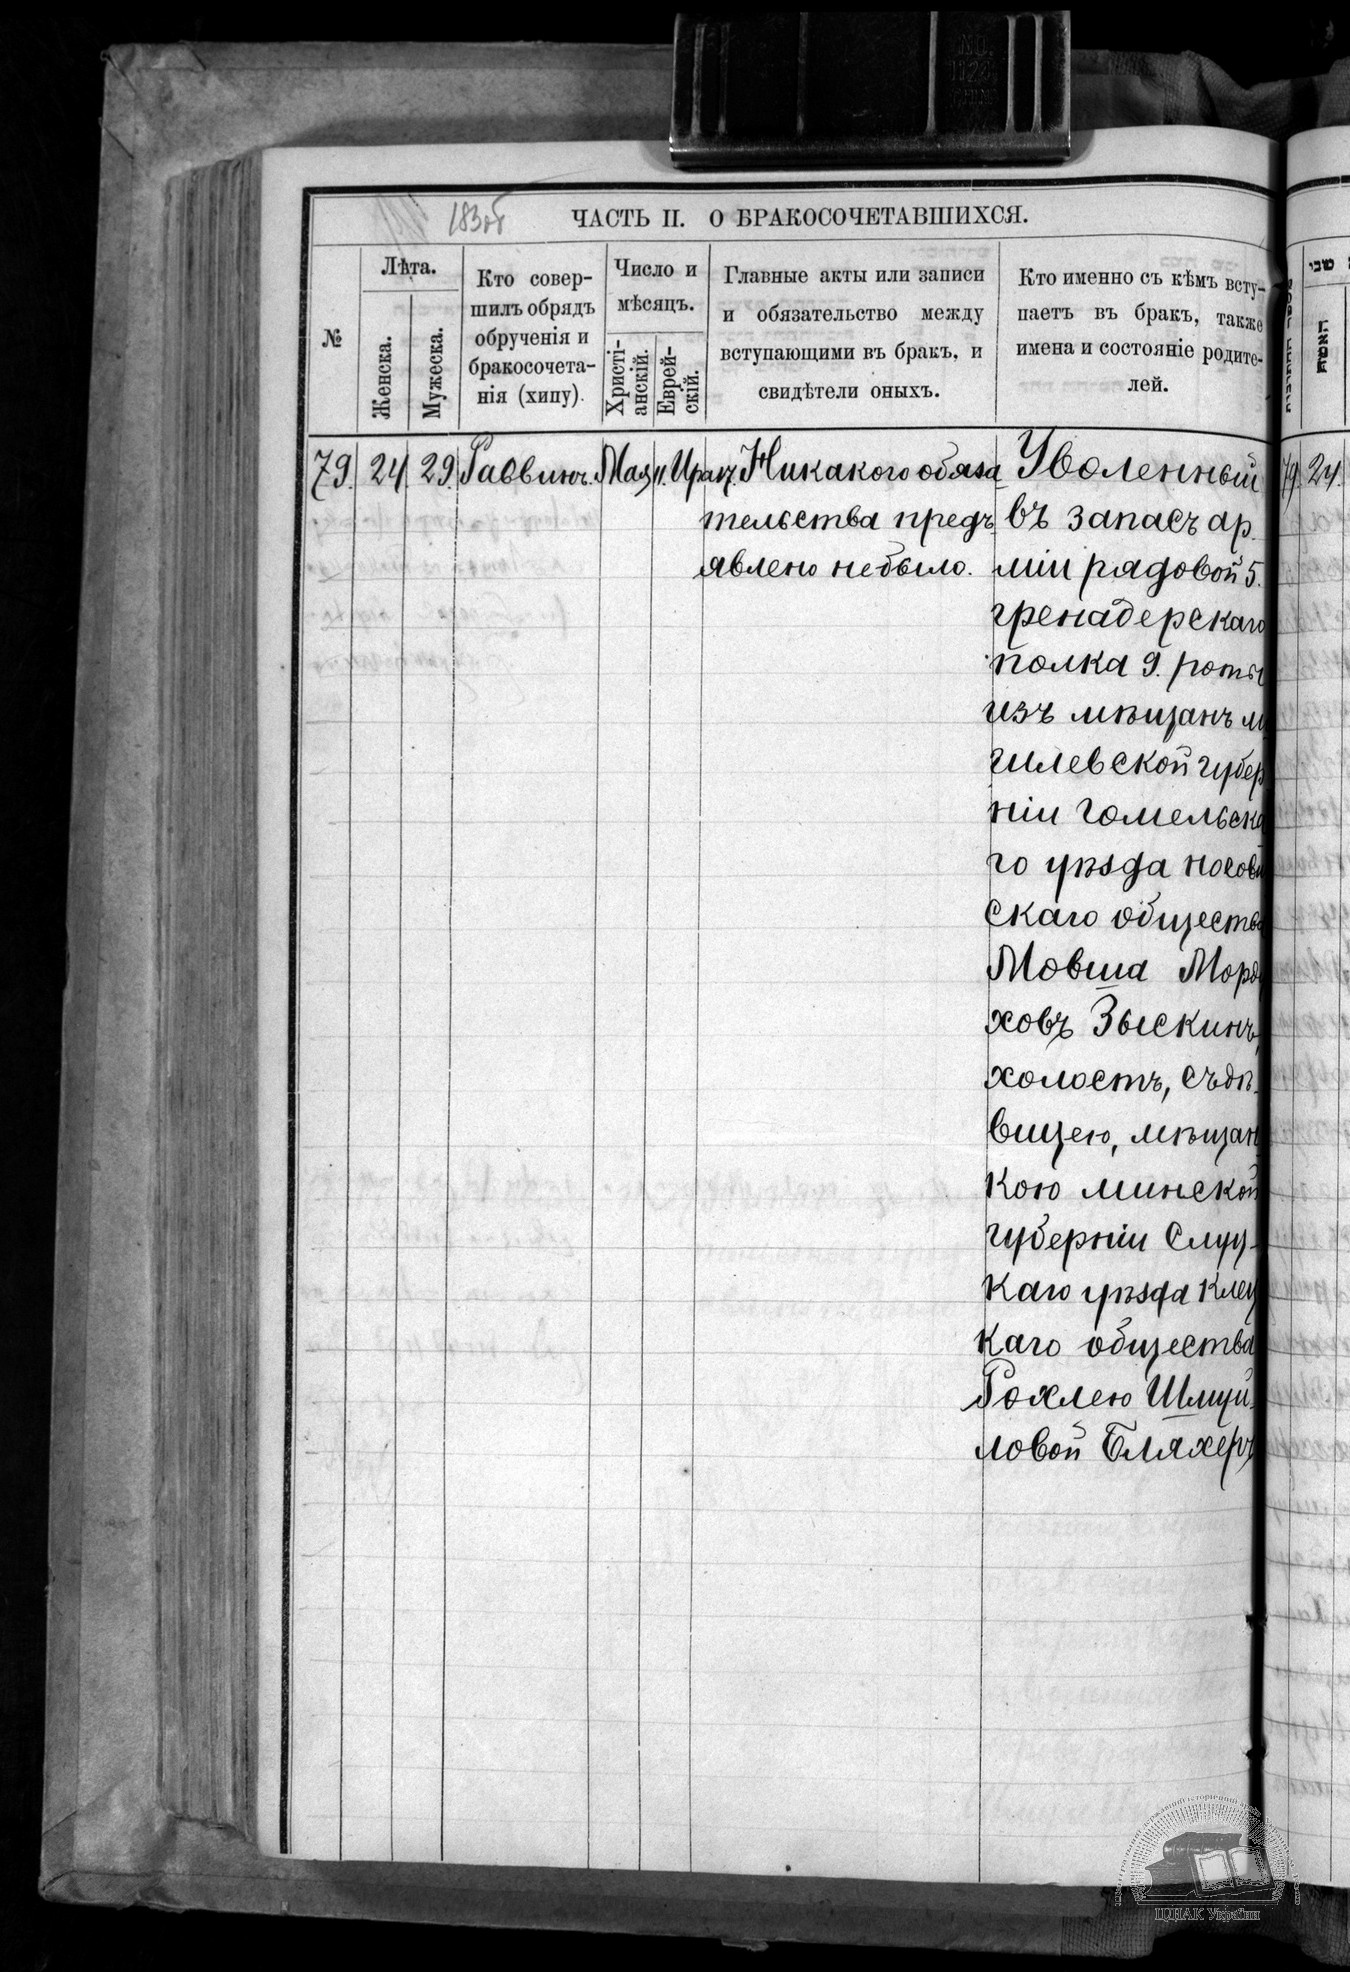 183об
ЧАСТЬ II. О БРАКОСОЧЕТАВШИХСЯ.
№
Лѣта.
Женска.
Мужеска.
Кто совер-
шилъ обрядъ
обрученія и
бракосочета-
нія (хипу).
Число и
мѣсяцъ.
Христі-
анскій.
Еврей-
скій.
Главные акты или записи
и обязательство между
вступающими въ бракъ, и
свидѣтели оныхъ.
Кто именно съ кѣмъ всту-
паетъ въ бракъ, также
имена и состояніе родите-
лей.
79. 24. 29. Раввинъ. Мая 11.
Никакого обяза-
тельства предъ-
явлено небыло.
Уволенный
въ запасъ ар-
міи рядовой 5.
гренадерскаго
полка 9. роты
изъ мѣщанъ м
гилевской губер
ніи Гомельска
го уѣзда Носови
скаго общества
Мовша Морду
ховъ Зыскинъ,
холостъ, съ дѣ-
вицею, мѣщан
кою минской
губерніи Слуц-
каго уѣзда Клец
каго общества
Рохлею Шмуй-
ловой Бляхеръ
שני
האשה
79. 24.
ЦДІАК України